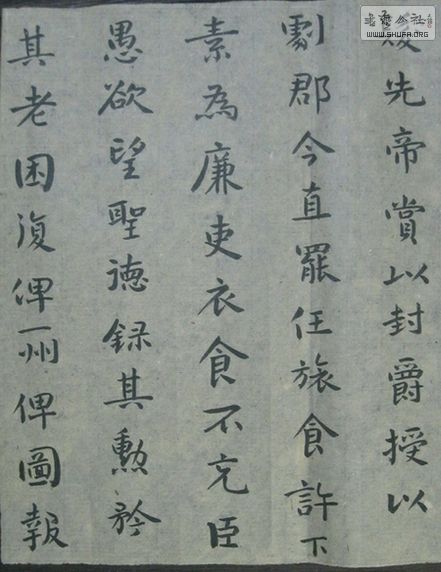 先帝賞以封爵授以
劇郡今直罷任旅食許下
素為廉吏衣食不充臣
愚欲望聖德録其勲矜
其老困復俾一州俾圖報
WWW.SHUFA.ORG